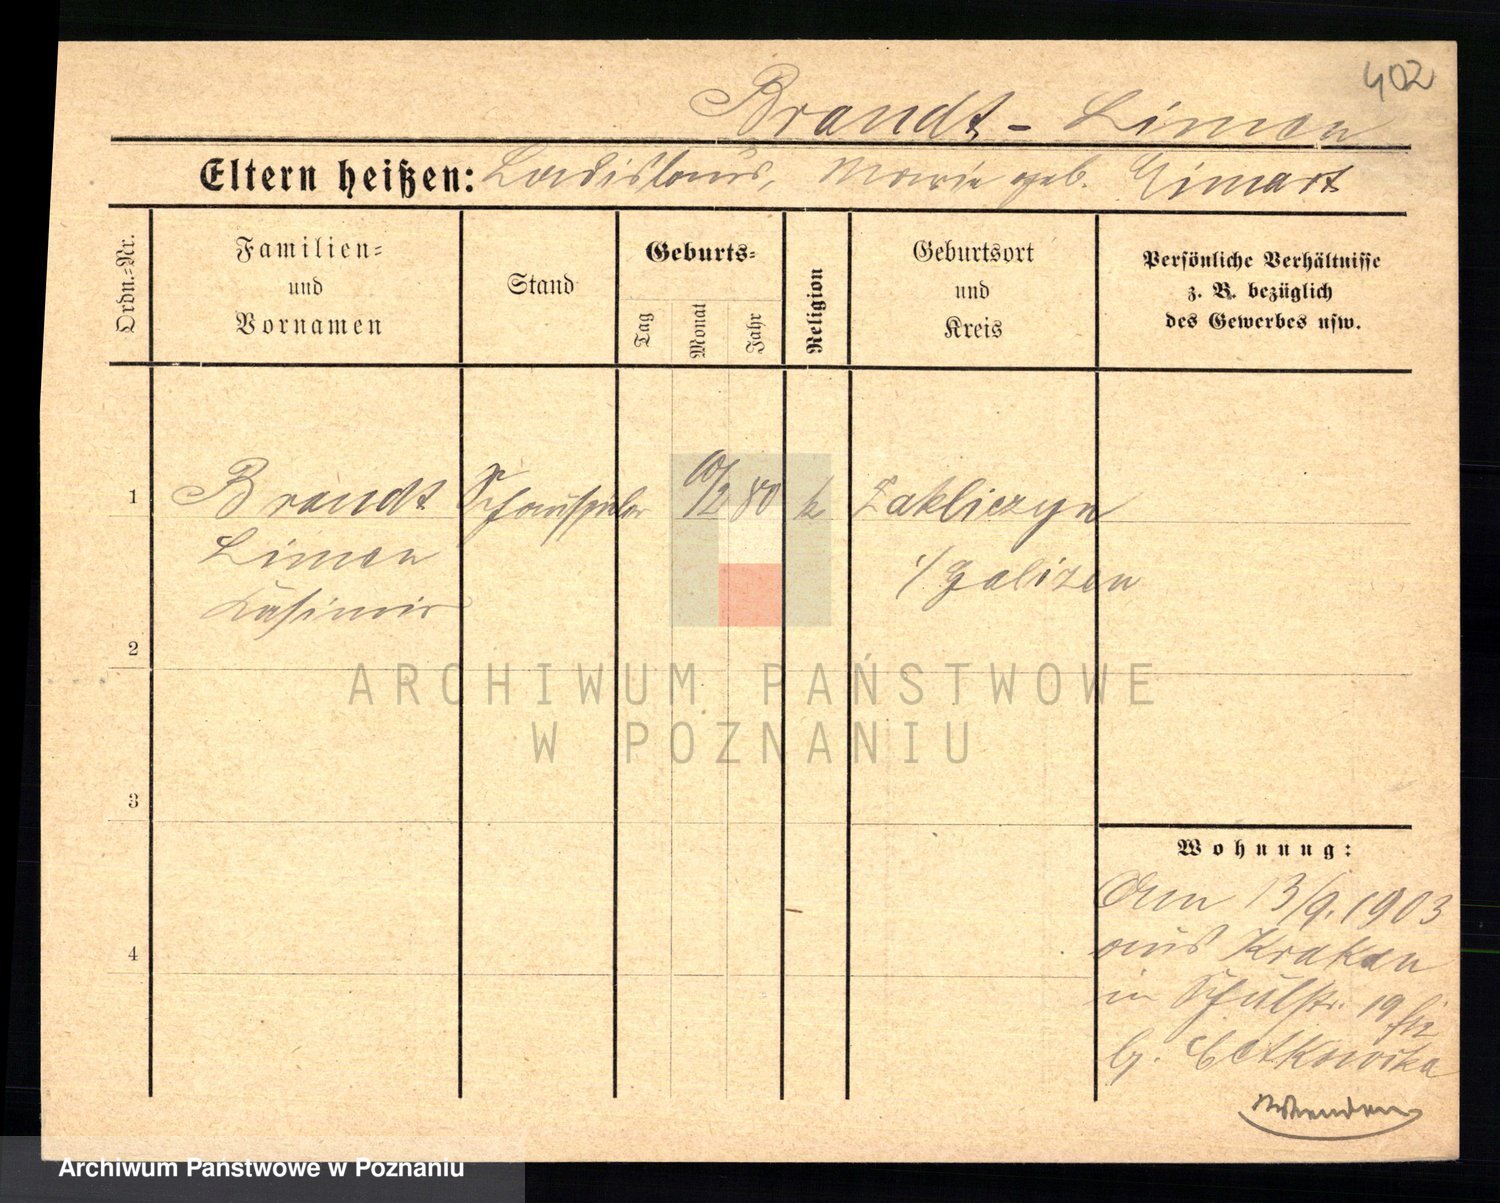 402
Brandt - Limon
Eltern heißen: Ladislaus, Marie geb. Eimart
Ordn.=Nr.
Familien=
und
Vornamen
Stand
Geburts=
Tag
Monat
Jahr
Religion
Geburtsort
und
Kreis
Persönliche Verhältnisse
z. B. bezüglich
des Gewerbes usw.
1
Brandt Schauspieler 10/2 80 k Zakliczyn
Limon i/ Galizen
Kasimir
2
ARCHIWUM PAŃSTWOWE
W POZNANIU
3
Wohnung:
Am 13/9. 1903
aus Krakau
in Schulstr. 19
b. Cetkowska
4
Wenden
Archiwum Państwowe w Poznaniu